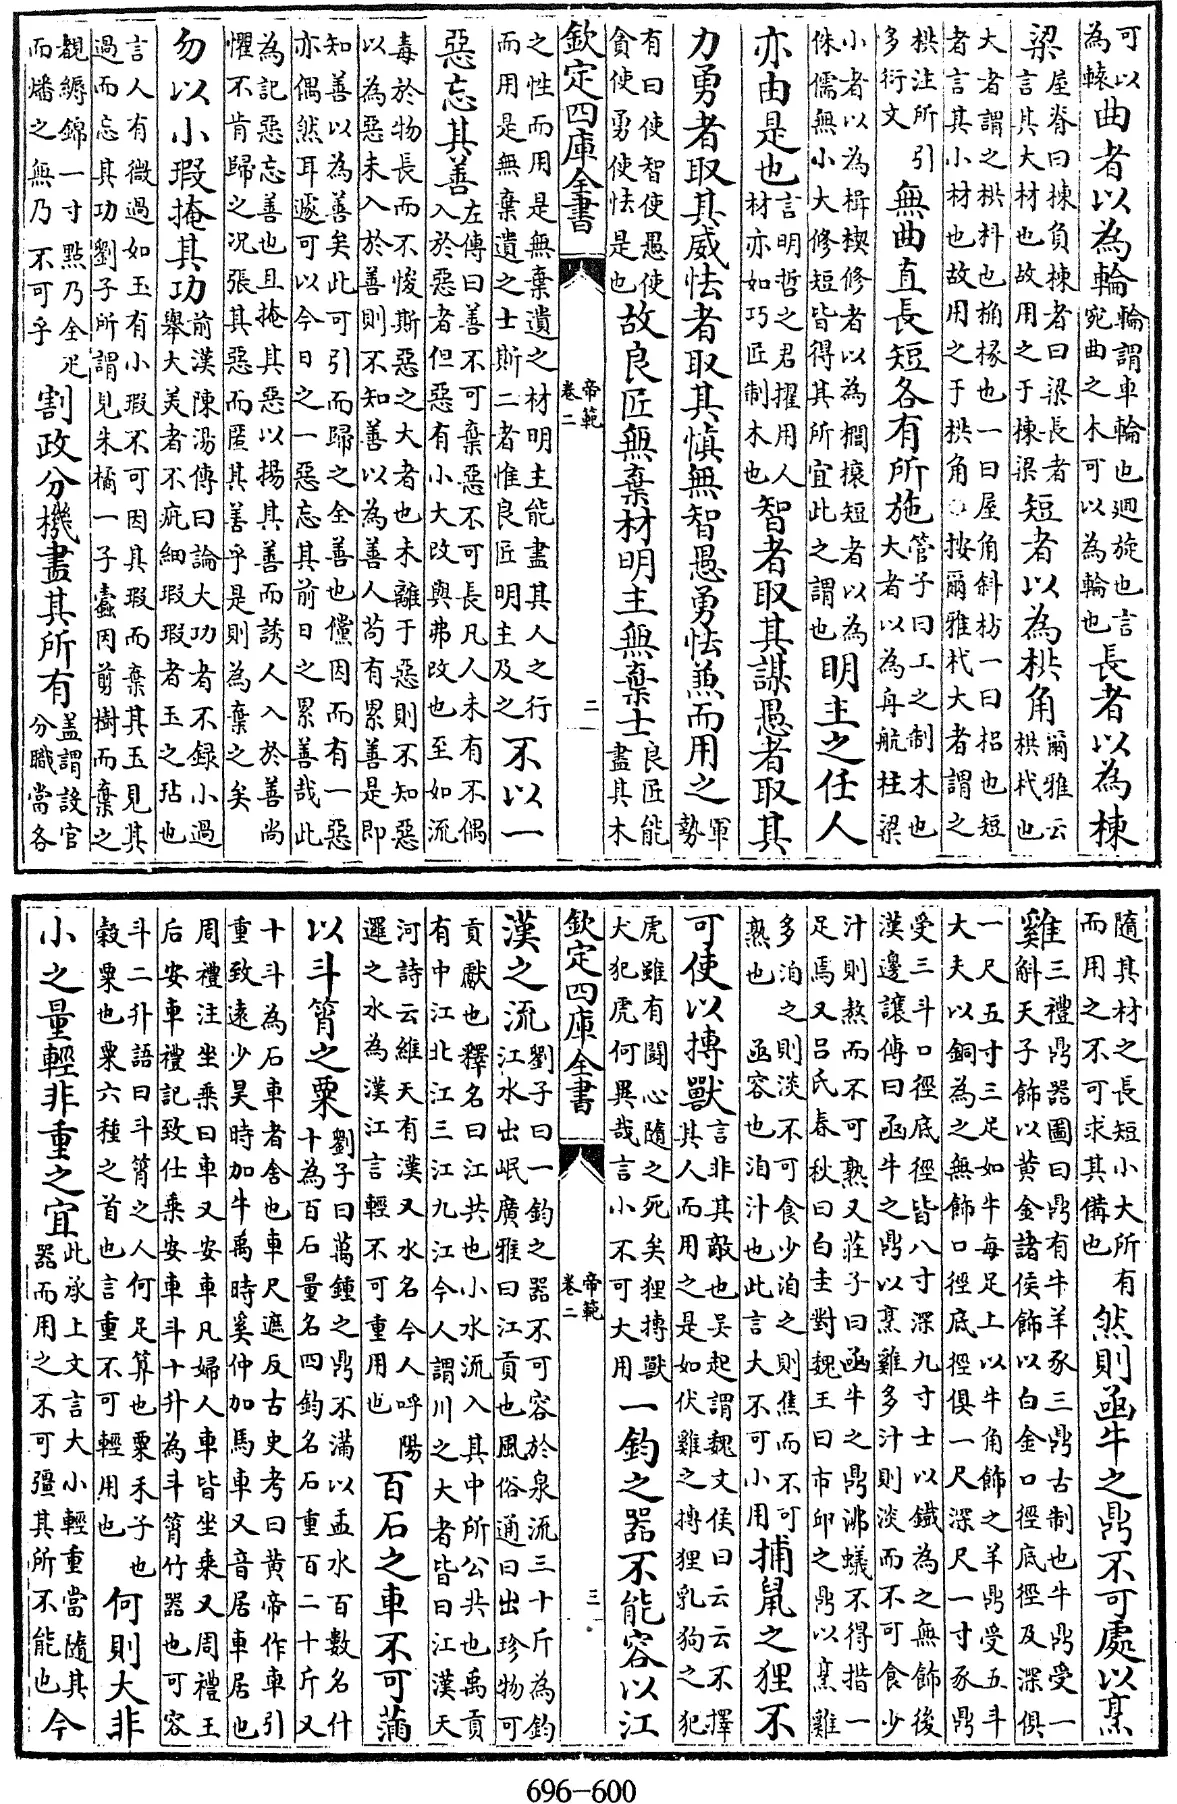 可以為轅曲者以為輪輪謂車輪也廻旋也言宛曲之木可以為輪也長者以為棟
梁屋脊曰棟負棟者曰梁長者言其大材也故用之于棟梁短者以為栱角爾雅云栱杙也
大者謂之栱枓也桷椽也一曰屋角斜枋一曰梠也短者言其小材也故用之于栱角〇按爾雅杙大者謂之
栱注所引多衍文無曲直長短各有所施管子曰工之制木也大者以為舟航柱梁
小者以為楫楔修者以為櫩榱短者以為侏儒無小大修短皆得其所宜此之謂也明主之任人
亦由是也言明哲之君擢用人材亦如巧匠制木也智者取其謀愚者取其
力勇者取其威怯者取其慎無智愚勇怯兼而用之軍勢
有曰使智使愚使貪使勇使怯是也故良匠無棄材明主無棄士良匠能盡其木
欽定四庫全書 帝範卷二 二
之性而用是無棄遺之材明主能盡其人之行而用是無棄遺之士斯二者惟良匠明主及之不以一
惡忘其善左傳曰善不可棄惡不可長凡人未有不偶入於惡者但惡有小大改與弗改也至如流
毒於物長而不悛斯惡之大者也未離于惡則不知惡以為惡未入於善則不知善以為善人苟有累善是即
知善以為善矣此可引而歸之全善也儻因而有一惡亦偶然耳遽可以今日之一惡忘其前日之累善哉此
為記惡忘善也且掩其惡以揚其善而誘人入於善尚懼不肯歸之况張其惡而匿其善乎是則為棄之矣
勿以小瑕掩其功前漢陳湯傳曰論大功者不録小過舉大美者不疵細瑕瑕者玉之玷也
言人有微過如玉有小瑕不可因其瑕而棄其玉見其過而忘其功劉子所謂見朱橘一子蠹因剪樹而棄之
覩縟錦一寸點乃全疋而燔之無乃不可乎割政分機盡其所有蓋謂設官分職當各
隨其材之長短小大所有而用之不可求其備也然則凾牛之鼎不可處以烹
雞三禮鼎器圖曰鼎有牛羊豕三鼎古制也牛鼎受一斛天子飾以黄金諸侯飾以白金口徑底徑及深俱
一尺五寸三足如牛每足上以牛角飾之羊鼎受五斗大夫以銅為之無飾口徑底徑俱一尺深尺一寸豕鼎
受三斗口徑底徑皆八寸深九寸士以鐵為之無飾後漢邊讓傳曰凾牛之鼎以烹雞多汁則淡而不可食少
汁則熬而不可熟又莊子曰凾牛之鼎沸蟻不得措一足焉又吕氏春秋曰白圭對魏王曰市邱之鼎以烹雞
多洎之則淡不可食少洎之則焦而不可熟也凾容也洎汁也此言大不可小用捕鼠之狸不
可使以摶獸言非其敵也吴起謂魏文侯曰云云不擇其人而用之是如伏雞之摶狸乳狗之犯
虎雖有鬬心隨之死矣狸摶獸犬犯虎何異哉言小不可大用一鈞之器不能容以江
欽定四庫全書 帝範卷二 三
漢之流劉子曰一鈞之器不可容於泉流三十斤為鈞江水出岷廣雅曰江貢也風俗通曰出珍物可
貢獻也釋名曰江共也小水流入其中所公共也禹貢有中江北江三江九江今人謂川之大者皆曰江漢天
河詩云維天有漢又水名今人呼陽邏之水為漢江言輕不可重用也百石之車不可滿
以斗筲之粟劉子曰萬鍾之鼎不滿以盂水百數名什十為百石量名四鈞名石重百二十斤又
十斗為石車者舍也車尺遮反古史考曰黄帝作車引重致遠少昊時加牛禹時奚仲加馬車又音居車居也
周禮注坐乗曰車又安車凡婦人車皆坐乗又周禮王后安車禮記致仕乗安車斗十升為斗筲竹器也可容
斗二升語曰斗筲之人何足算也粟禾子也榖粟也粟六種之首也言重不可輕用也何則大非
小之量輕非重之宜此承上文言大小輕重當隨其器而用之不可彊其所不能也今
696-600